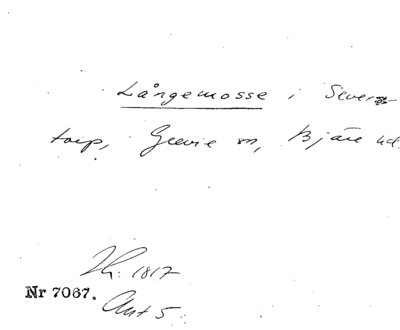 Långemosse i Severs-
torp, Grevie sn, Bjäre hd.
Nr 7067.
1817
Ant 5.